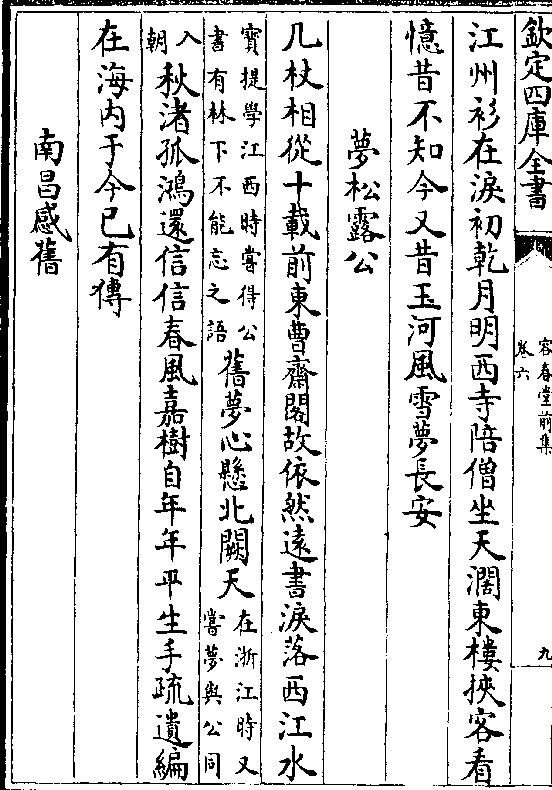 欽定四庫全書
容春堂前集
卷六
九
江州衫在淚初乾月明西寺陪僧坐天濶東樓挾客看
憶昔不知今又昔玉河風雪夢長安
夢松露公
几杖相從十載前東曹齋閣故依然遠書淚落西江水
寶提學江西時嘗得公
書有林下不能忘之語
舊夢心懸北闕天
在浙江時又
嘗夢與公同
入
朝
秋渚孤鴻還信信春風嘉樹自年年平生手疏遺編
在海内于今已有傳
南昌感舊